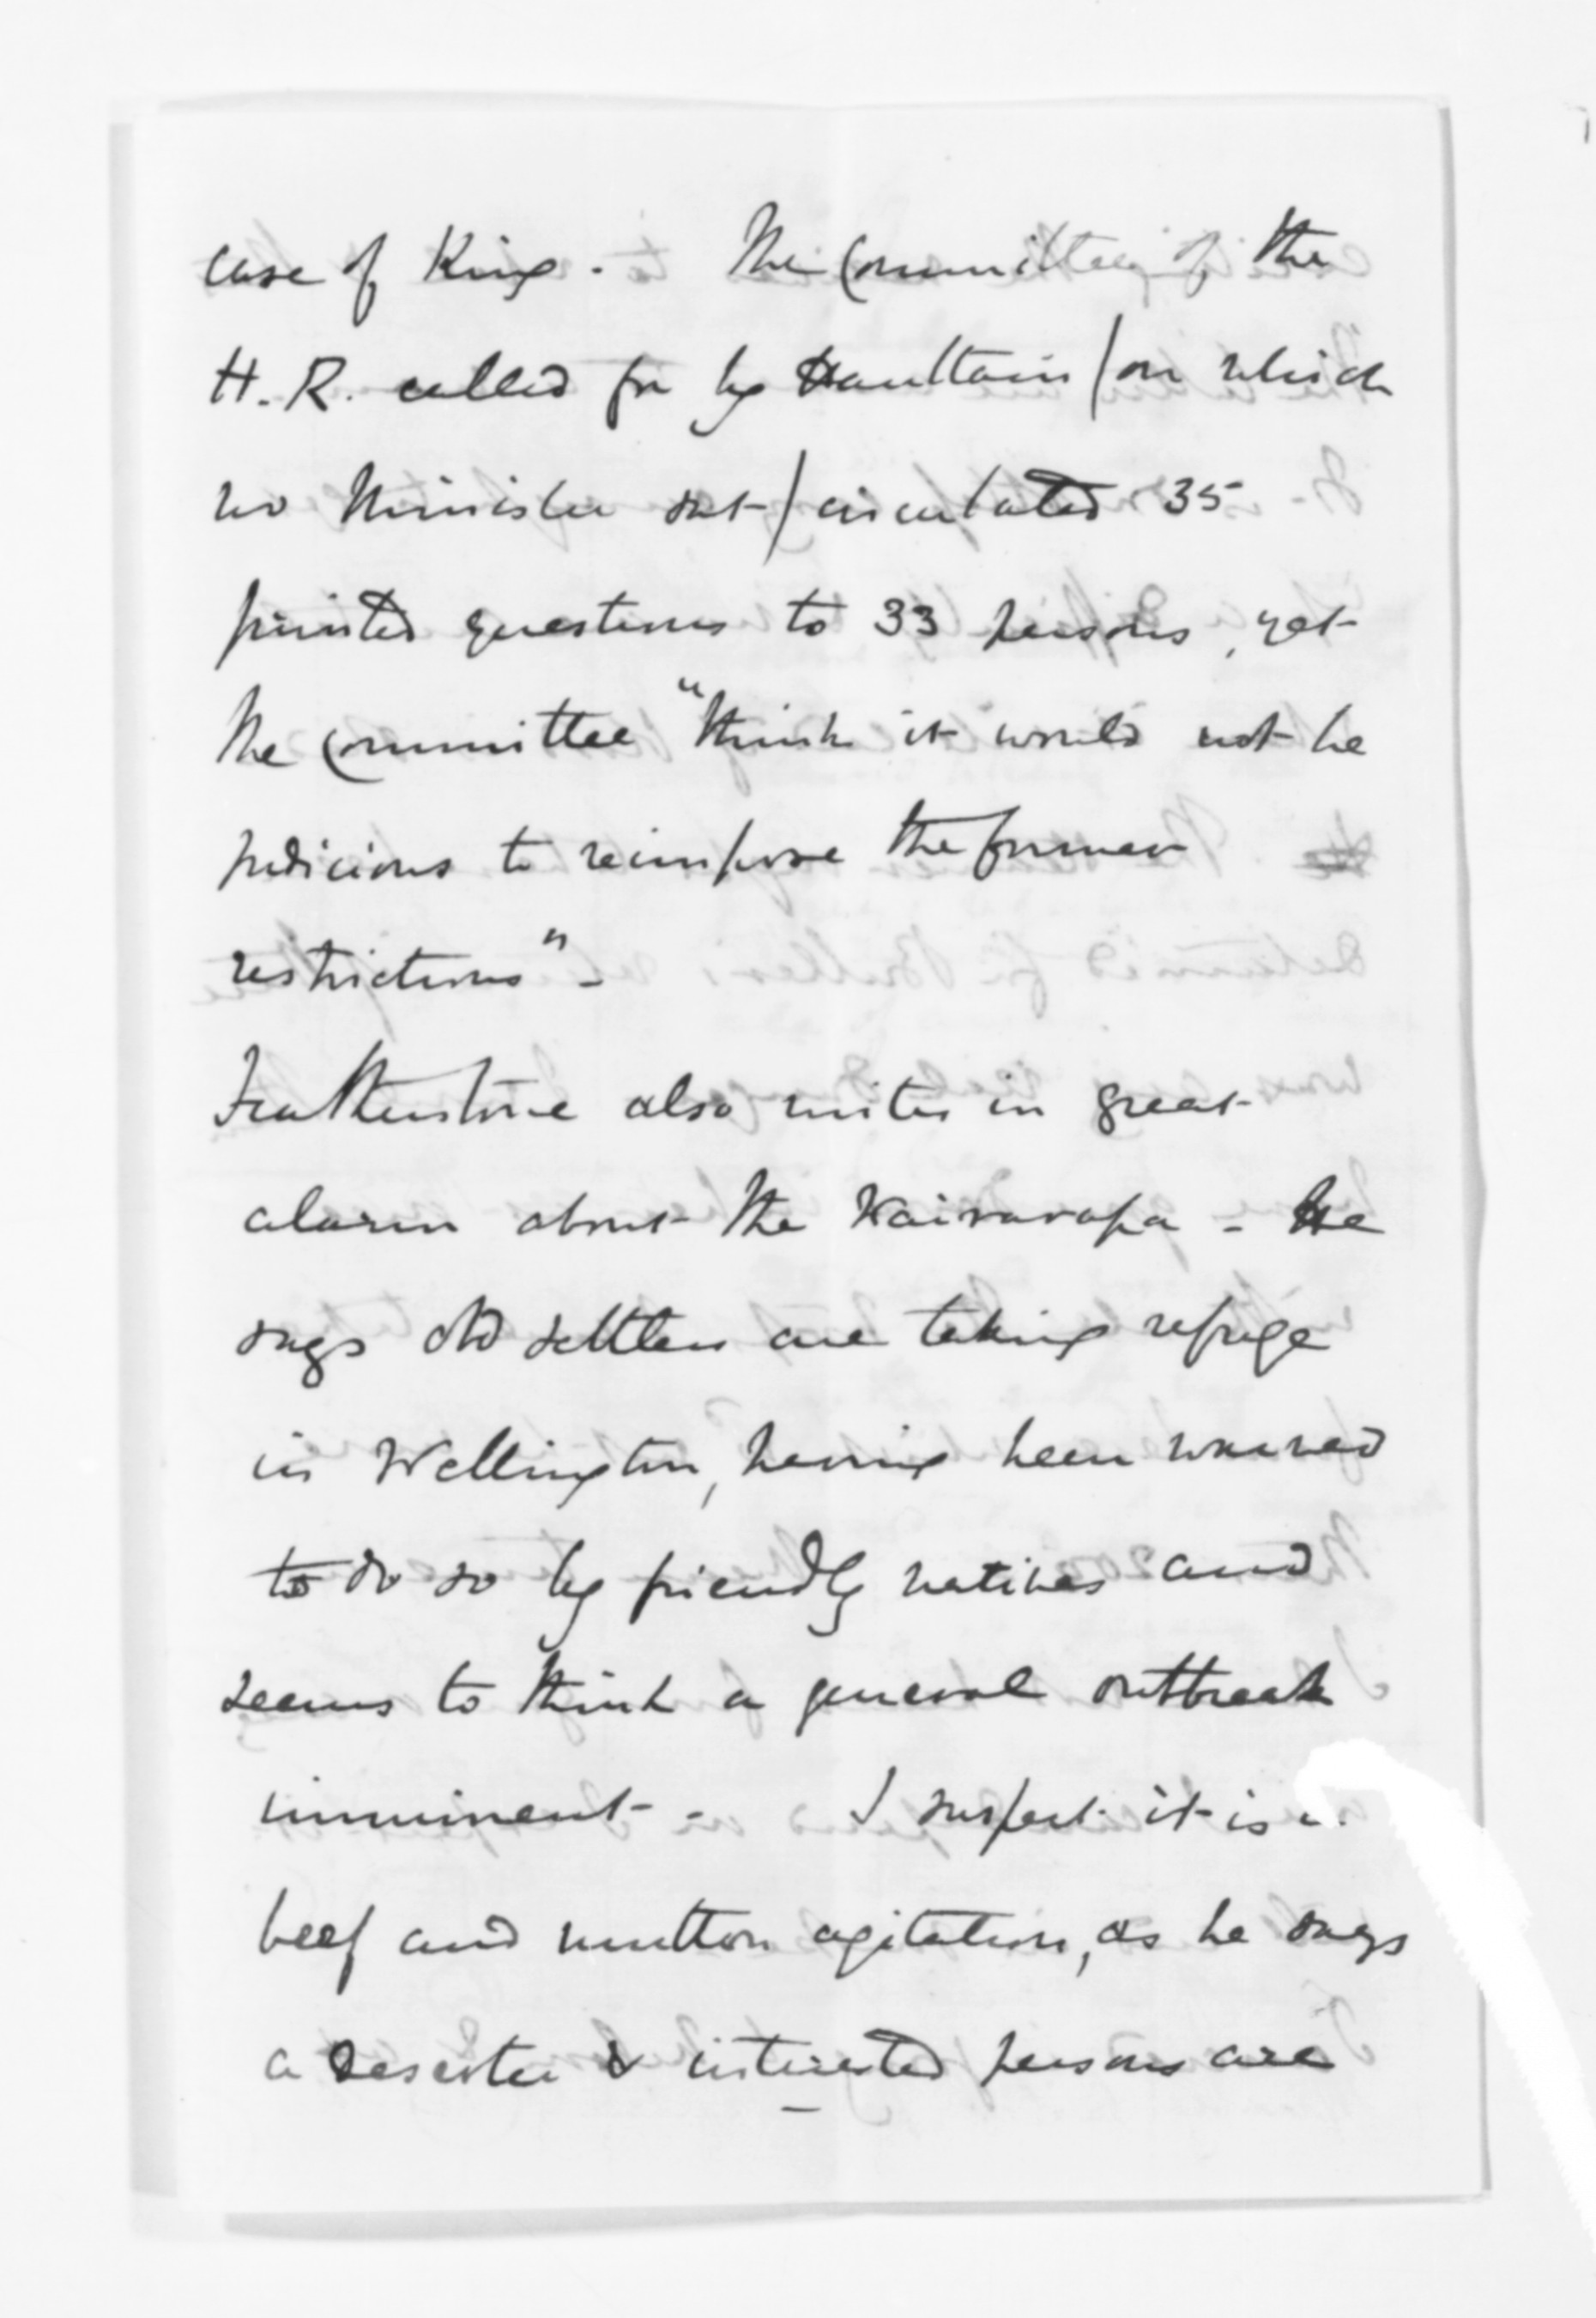 case of King. The Committee of the
H.R. called for by Haultain /on which
no Minister sat/ circulated 35
printed questions to 33 persons, yet
the Committee "think it would not be
judicious to reimpose the former
restrictions"-
Featherstone also writes in great
alarm about the Wairarapa - He
says old settlers are taking refuge
in Wellington, having been warned
to do so by friendly natives and
seems to think a general outbreak
imminent - I suspect it is a
beef and mutton agitation, as he says
a deserter & interested persons are